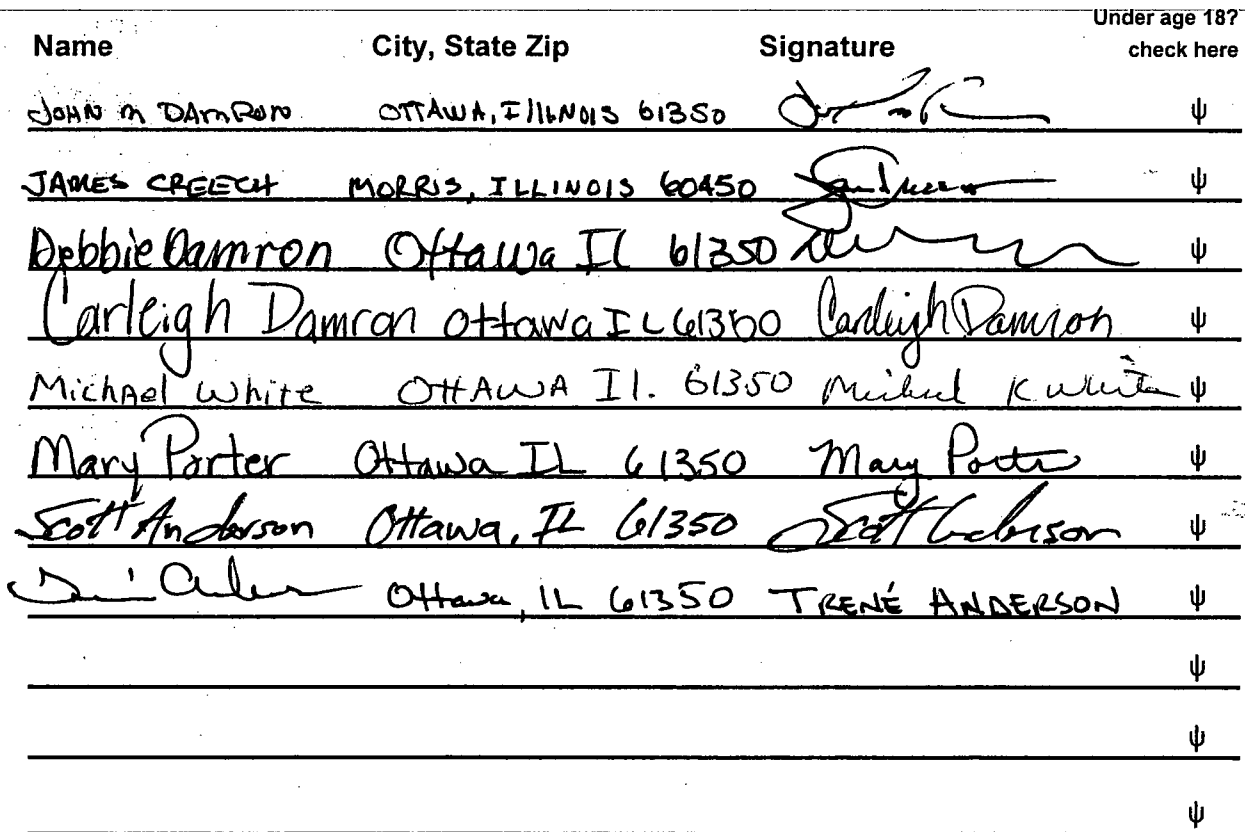 Under age 18?
Name City, State Zip Signature check here
JOHN M DAMRON OTTAWA, IllINOIS 61350 ψ
JAMES CREECH MORRIS, ILLINOIS 60450 ψ
Debbie Damron Ottawa Il 61350 ψ
Carleigh Damron Ottawa IL 61350 Carleigh Damron ψ
Michael White OttAWA Il. 61350 Michael K White ψ
Mary Porter Ottawa IL 61350 Mary Porter ψ
Scott Anderson Ottawa, IL 61350 Scott Anderson ψ
Ottawa, IL 61350 TRENÉ ANDERSON ψ
ψ
ψ
ψ